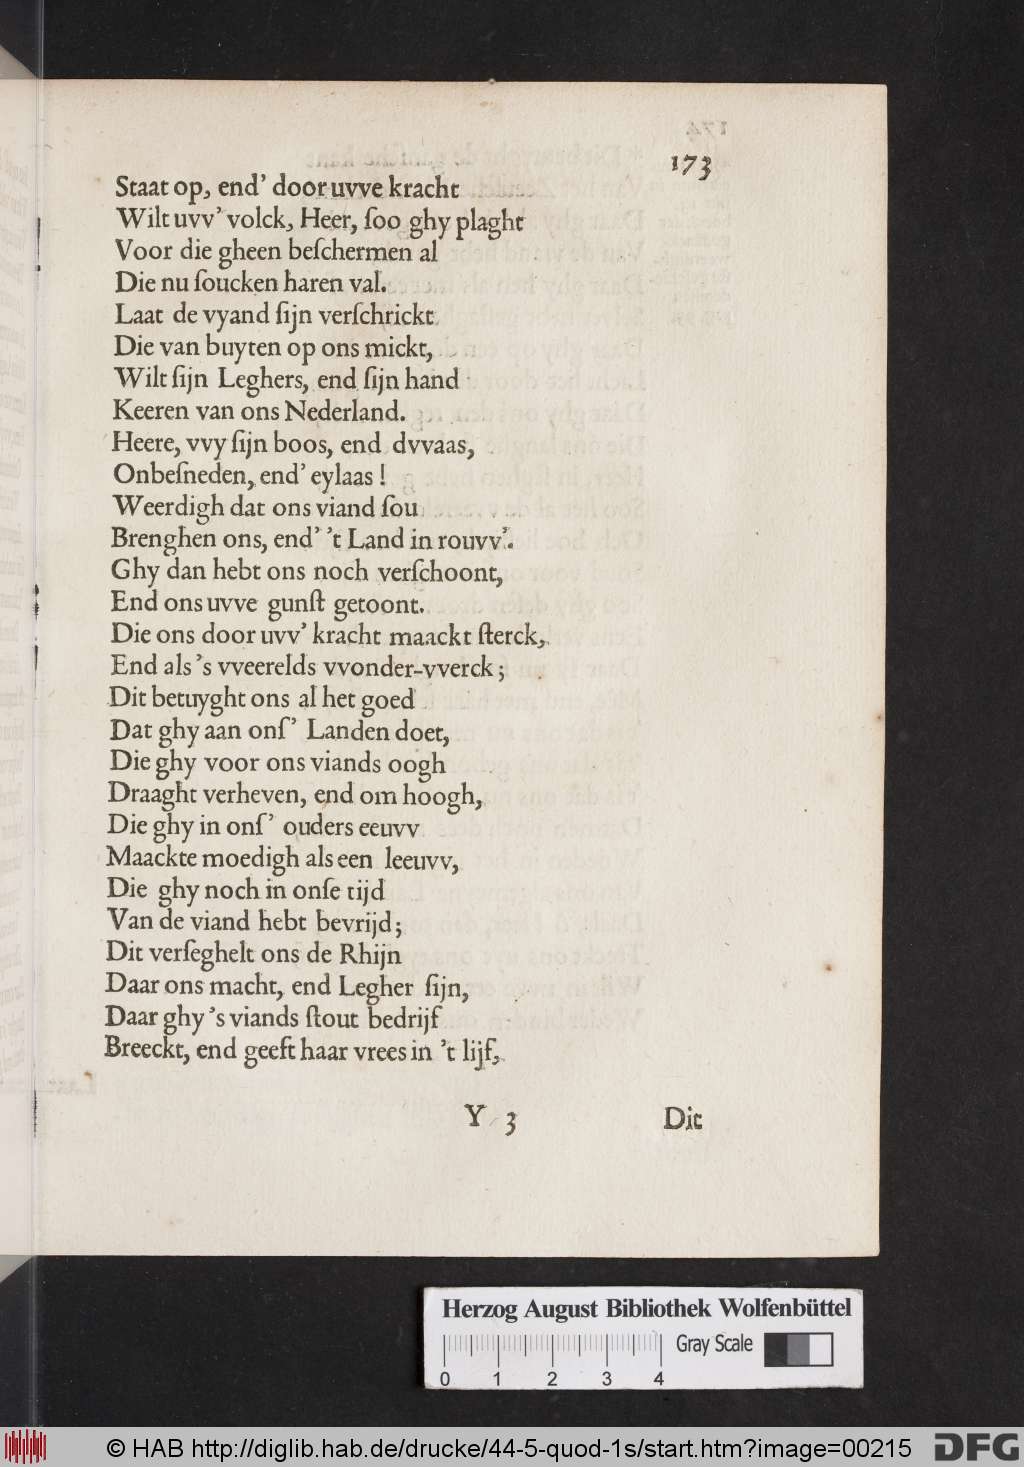 173
Staat op, end’ door uvve kracht
Wilt uvv’ volck, Heer, ſoo ghy plaght
Voor die gheen beſchermen al
Die nu ſoucken haren val.
Laat de vyand ſijn verſchrickt
Die van buyten op ons mickt,
Wilt ſijn Leghers, end ſijn hand
Keeren van ons Nederland.
Heere, vvy ſijn boos, end dvvaas,
Onbeſneden, end’ eylaas !
Weerdigh dat ons viand ſou
Brenghen ons, end’ ’t Land in rouvv’.
Ghy dan hebt ons noch verſchoont,
End ons uvve gunſt getoont.
Die ons door uvv’ kracht maackt ſterck,
End als ’s vveerelds vvonder-vverck ;
Dit betuyght ons al het goed
Dat ghy aan onſ’ Landen doet,
Die ghy voor ons viands oogh
Draaght verheven, end om hoogh,
Die ghy in onſ’ ouders eeuvv
Maackte moedigh als een leeuvv,
Die ghy noch in onſe tijd
Van de viand hebt bevrijd;
Dit verſeghelt ons de Rhijn
Daar ons macht, end Legher ſijn,
Daar ghy ’s viands ſtout bedrijf
Breeckt, end geeft haar vrees in ’t lijf,
Y 3 Dit
Herzog August Bibliothek Wolfenbüttel
Gray Scale
0 1 2 3 4
© HAB http://diglib.hab.de/drucke/44-5-quod-1s/start.htm?image=00215
DFG